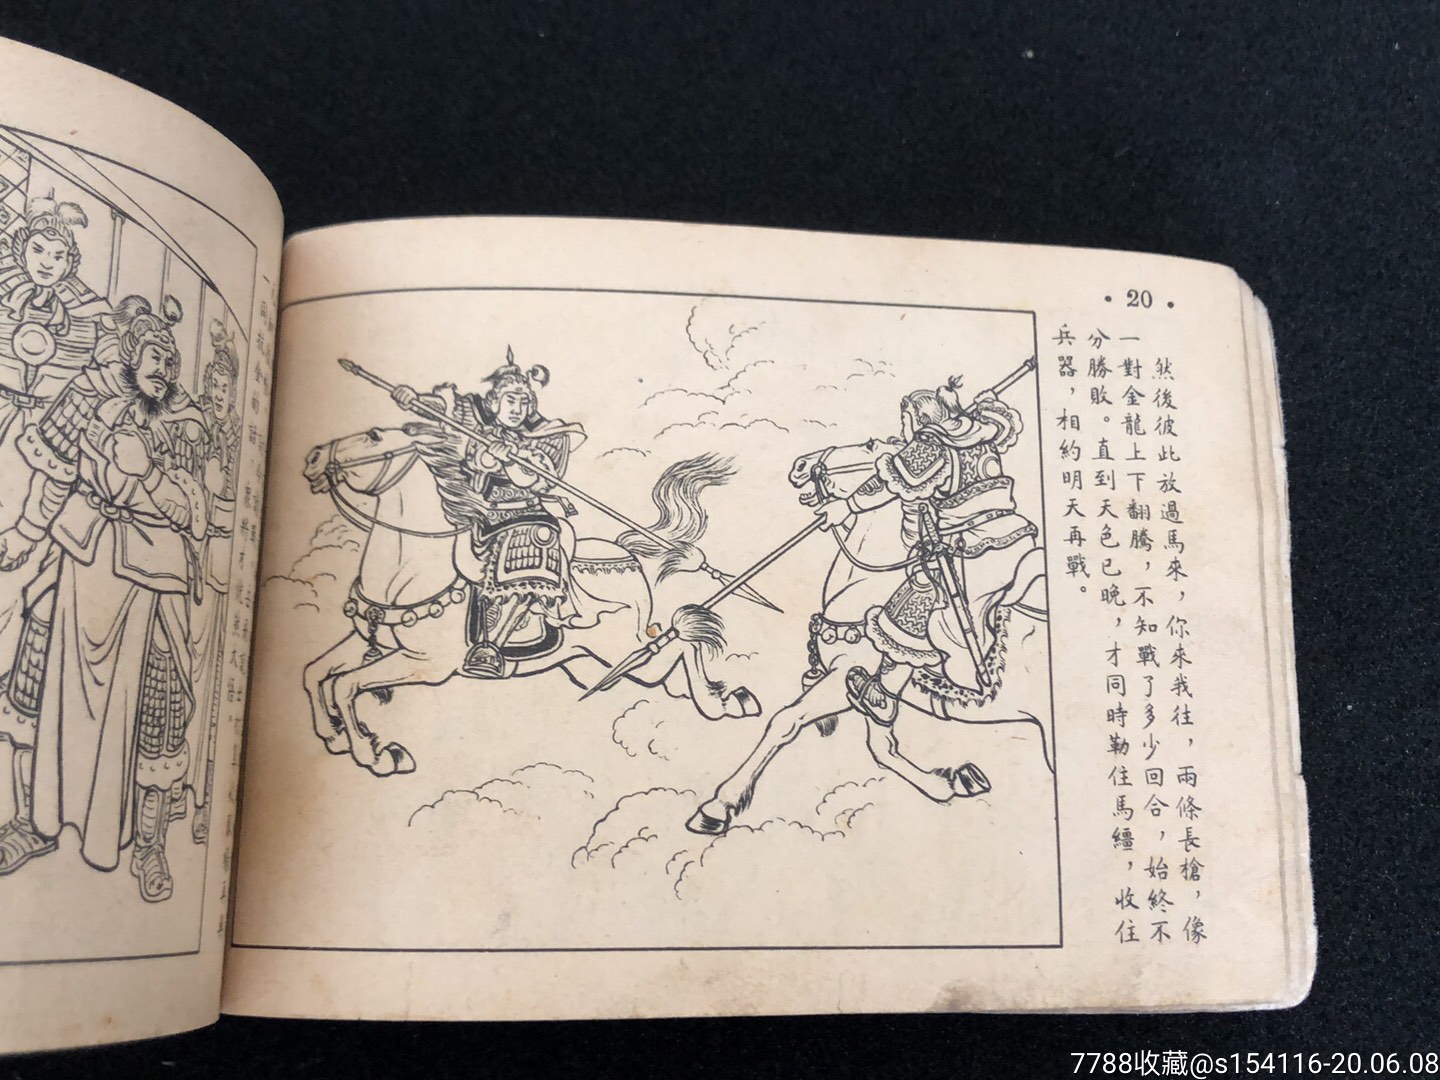 • 20 •
然後彼此放過馬來，你來我往，兩條長槍，像
一對金龍上下翻騰，不知戰了多少回合，始終不
分勝敗。直到天色已晚，才同時勒住馬繮，收住
兵器，相約明天再戰。
7788收藏@s154116-20.06.08